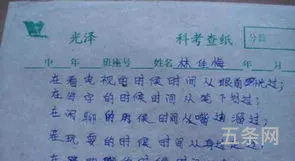 光泽 科考查纸 分数
中 年 班座号 姓名 林佳梅 年 月
在看电视的时候时间从眼前晃过;
在写字的时候时间从笔下划过;
在闲聊的时候时间从嘴边溜过;
在玩耍的时候时间从身边
五条网
(wutiao.net)